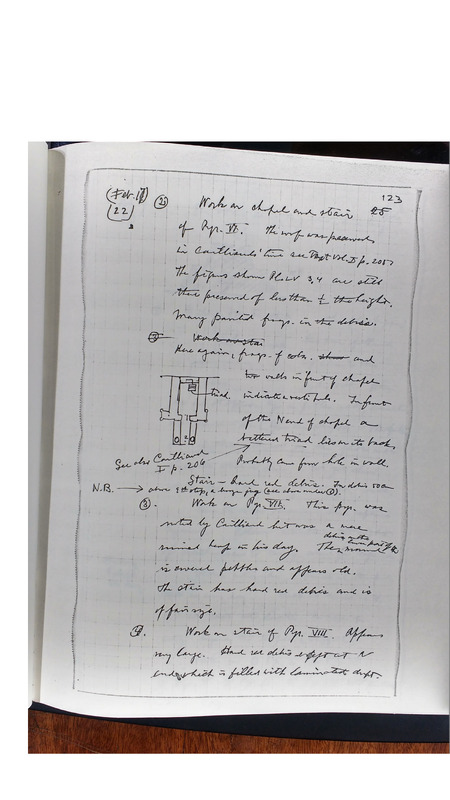 123
(Feb. 17)
(22)
(2) Work on chapel and stair
of Pyr. VI. The roof was preserved
in Cailliaud's time see Text Vol. II p. 205.
The figures shown Pl. LV 3, 4 are still
there preserved of less than ½ the height.
Many painted frags. in the debris.
Work on stair
Here again, frags. of cols. and
two walls in front of chapel
triad.
indicate vestibule. In front
of the N end of chapel a
battered triad lies on its back.
See also Cailliaud
I p. 206
Probably came from hole in wall.
Stair – hard red debris. In debris
N.B. → above 9th step, a large jug (see above under ).
(3). Work on Pyr. VII. This pyr. was
noted by Cailliaud but was a mere
debris on the
ruined heap in his day. The mound
is covered pebbles and appears old.
The stair has hard red debris and is
of fair size.
(4). Work on stair of Pyr. VIII. Appears
very large. Hard red debris except at N
end which is filled with laminated dept.